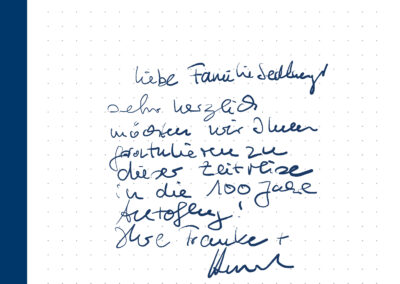 liebe Familie Sedlmayr
sehr herzlich
möchten wir Ihnen
gratulieren zu
dieser Zeitreise
in die 100 Jahre
Ihre Frauke +